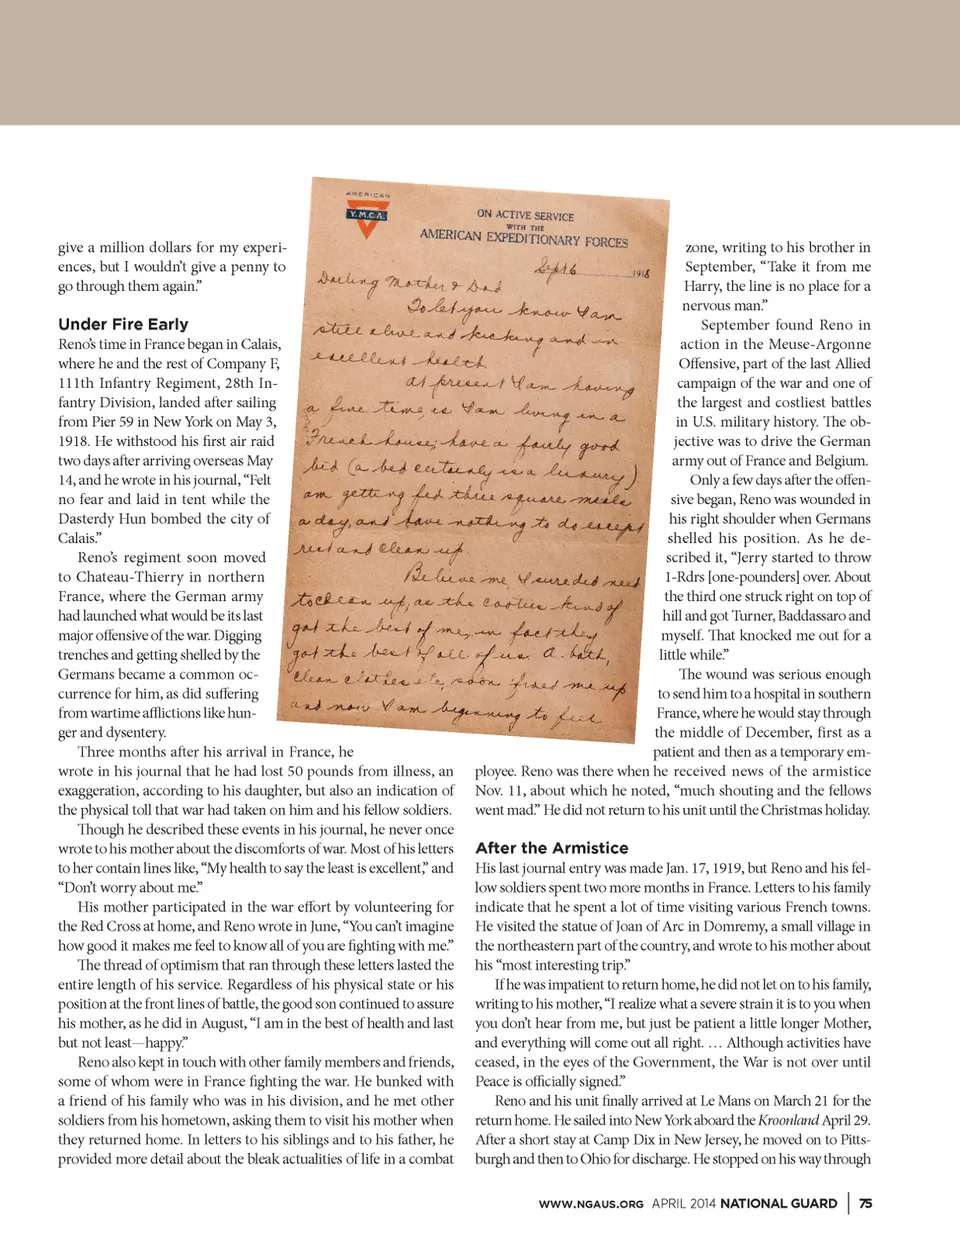 give a million dollars for my experi-
ences, but I wouldn't give a penny to
go through them again."
Under Fire Early
Reno's time in France began in Calais,
where he and the rest of Company F,
111th Infantry Regiment, 28th In-
fantry Division, landed after sailing
from Pier 59 in New York on May 3,
1918. He withstood his first air raid
two days after arriving overseas May
14, and he wrote in his journal, "Felt
no fear and laid in tent while the
Dasterdy Hun bombed the city of
Calais."
Reno's regiment soon moved
to Chateau-Thierry in northern
France, where the German army
had launched what would be its last
major offensive of the war. Digging
trenches and getting shelled by the
Germans became a common oc-
currence for him, as did suffering
from wartime afflictions like hun-
ger and dysentery.
Three months after his arrival in France, he
wrote in his journal that he had lost 50 pounds from illness, an
exaggeration, according to his daughter, but also an indication of
the physical toll that war had taken on him and his fellow soldiers.
Though he described these events in his journal, he never once
wrote to his mother about the discomforts of war. Most of his letters
to her contain lines like, "My health to say the least is excellent," and
"Don't worry about me."
His mother participated in the war effort by volunteering for
the Red Cross at home, and Reno wrote in June, "You can't imagine
how good it makes me feel to know all of you are fighting with me."
The thread of optimism that ran through these letters lasted the
entire length of his service. Regardless of his physical state or his
position at the front lines of battle, the good son continued to assure
his mother, as he did in August, "I am in the best of health and last
but not least—happy."
Reno also kept in touch with other family members and friends,
some of whom were in France fighting the war. He bunked with
a friend of his family who was in his division, and he met other
soldiers from his hometown, asking them to visit his mother when
they returned home. In letters to his siblings and to his father, he
provided more detail about the bleak actualities of life in a combat
AMERICAN
Y.M.C.A.
ON ACTIVE SERVICE
WITH THE
AMERICAN EXPEDITIONARY FORCES
Sept 6 1918
Darling Mother & Dad
To let you know I am
still alive and kicking and in
excellent health.
At present I am having
a fine time as I am living in a
French house; have a fairly good
bed (a bed certainly is a luxury)
am getting fed three square meals
a day, and have nothing to do except
rest and clean up.
Believe me, I sure did need
to clean up, as the cooties kind of
got the best of me, in fact they
got the best of all of us. A bath,
clean clothes etc, soon fixed me up
and now I am beginning to feel
zone, writing to his brother in
September, "Take it from me
Harry, the line is no place for a
nervous man."
September found Reno in
action in the Meuse-Argonne
Offensive, part of the last Allied
campaign of the war and one of
the largest and costliest battles
in U.S. military history. The ob-
jective was to drive the German
army out of France and Belgium.
Only a few days after the offen-
sive began, Reno was wounded in
his right shoulder when Germans
shelled his position. As he de-
scribed it, "Jerry started to throw
1-Rdrs [one-pounders] over. About
the third one struck right on top of
hill and got Turner, Baddassaro and
myself. That knocked me out for a
little while."
The wound was serious enough
to send him to a hospital in southern
France, where he would stay through
the middle of December, first as a
patient and then as a temporary em-
ployee. Reno was there when he received news of the armistice
Nov. 11, about which he noted, "much shouting and the fellows
went mad." He did not return to his unit until the Christmas holiday.
After the Armistice
His last journal entry was made Jan. 17, 1919, but Reno and his fel-
low soldiers spent two more months in France. Letters to his family
indicate that he spent a lot of time visiting various French towns.
He visited the statue of Joan of Arc in Domremy, a small village in
the northeastern part of the country, and wrote to his mother about
his "most interesting trip."
If he was impatient to return home, he did not let on to his family,
writing to his mother, "I realize what a severe strain it is to you when
you don't hear from me, but just be patient a little longer Mother,
and everything will come out all right. … Although activities have
ceased, in the eyes of the Government, the War is not over until
Peace is officially signed."
Reno and his unit finally arrived at Le Mans on March 21 for the
return home. He sailed into New York aboard the Kroonland April 29.
After a short stay at Camp Dix in New Jersey, he moved on to Pitts-
burgh and then to Ohio for discharge. He stopped on his way through
WWW.NGAUS.ORG APRIL 2014 NATIONAL GUARD | 75